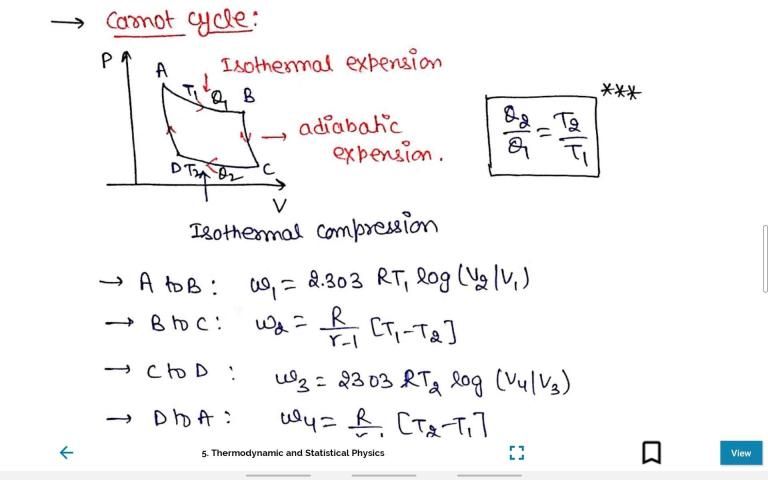 → Carnot cycle:
P
A
Isothermal expension
T1 Q1 B
→ adiabatic
expension.
D T2 Q2 C
V
Isothermal compression
Q2/Q1 = T2/T1
***
→ A to B : W1 = 2.303 RT1 log (V2/V1)
→ B to C : W2 = R/r-1 [T1-T2]
→ C to D : W3 = 2303 RT2 log (V4/V3)
→ D to A : W4 = R [T2-T1]
5. Thermodynamic and Statistical Physics
View